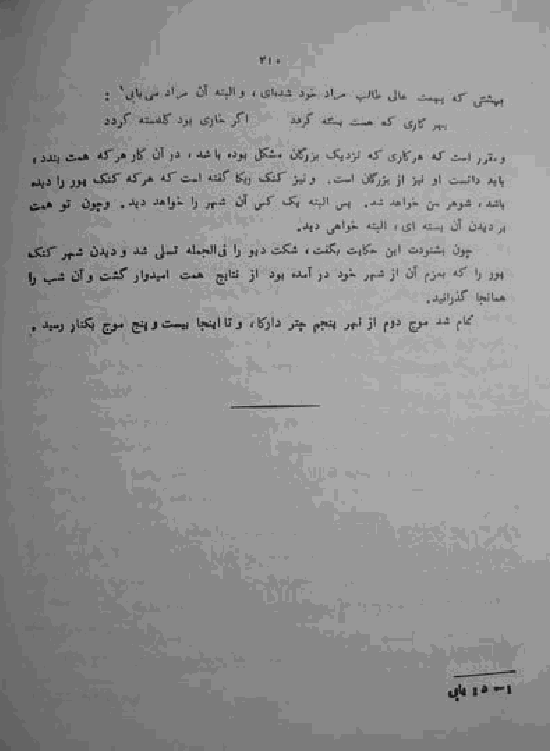 ۳۱۰
بهشتی که بهمت عالی طالب مراد خود شده‌ای، والبته آن مراد می‌یابی۱ :
بهر کاری که همت بسته گردد اگر خاری بود گلدسته گردد
ومقرر است که هرکاری که نزدیک بزرگان مشکل بوده باشد، در آن کار هرکه همت بندد،
باید دانست او نیز از بزرگان است. و نیز کنک ریکا گفته است که هرکه کنک پور را دیده
باشد، شوهر من خواهد شد. پس البته یک کس آن شهر را خواهد دید. وچون تو همت
بر دیدن آن بسته ای، البته خواهی دید.
چون بشنودت این حکایت بگفت، شکت دیو را فی‌الجمله تسلی شد و دیدن شهر کنک
پور را که بعزم آن از شهر خود در آمده بود از نتایج همت امیدوار گشت وآن شب را
همانجا گذرانید.
تمام شد موج دوم از نهر پنجم چتر دارکا، و تا اینجا بیست و پنج موج بکنار رسید.
۱- د: یابی